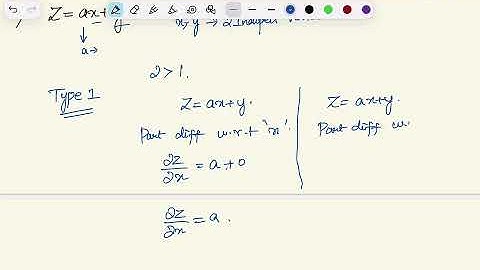 Z = ax + y
x, y → 2 Indepe
a →
2 > 1.
Type 1
Z = ax + y.
Part diff w.r.t 'x'.
∂z/∂x = a + 0
∂z/∂x = a.
Z = ax + y.
Part diff w.